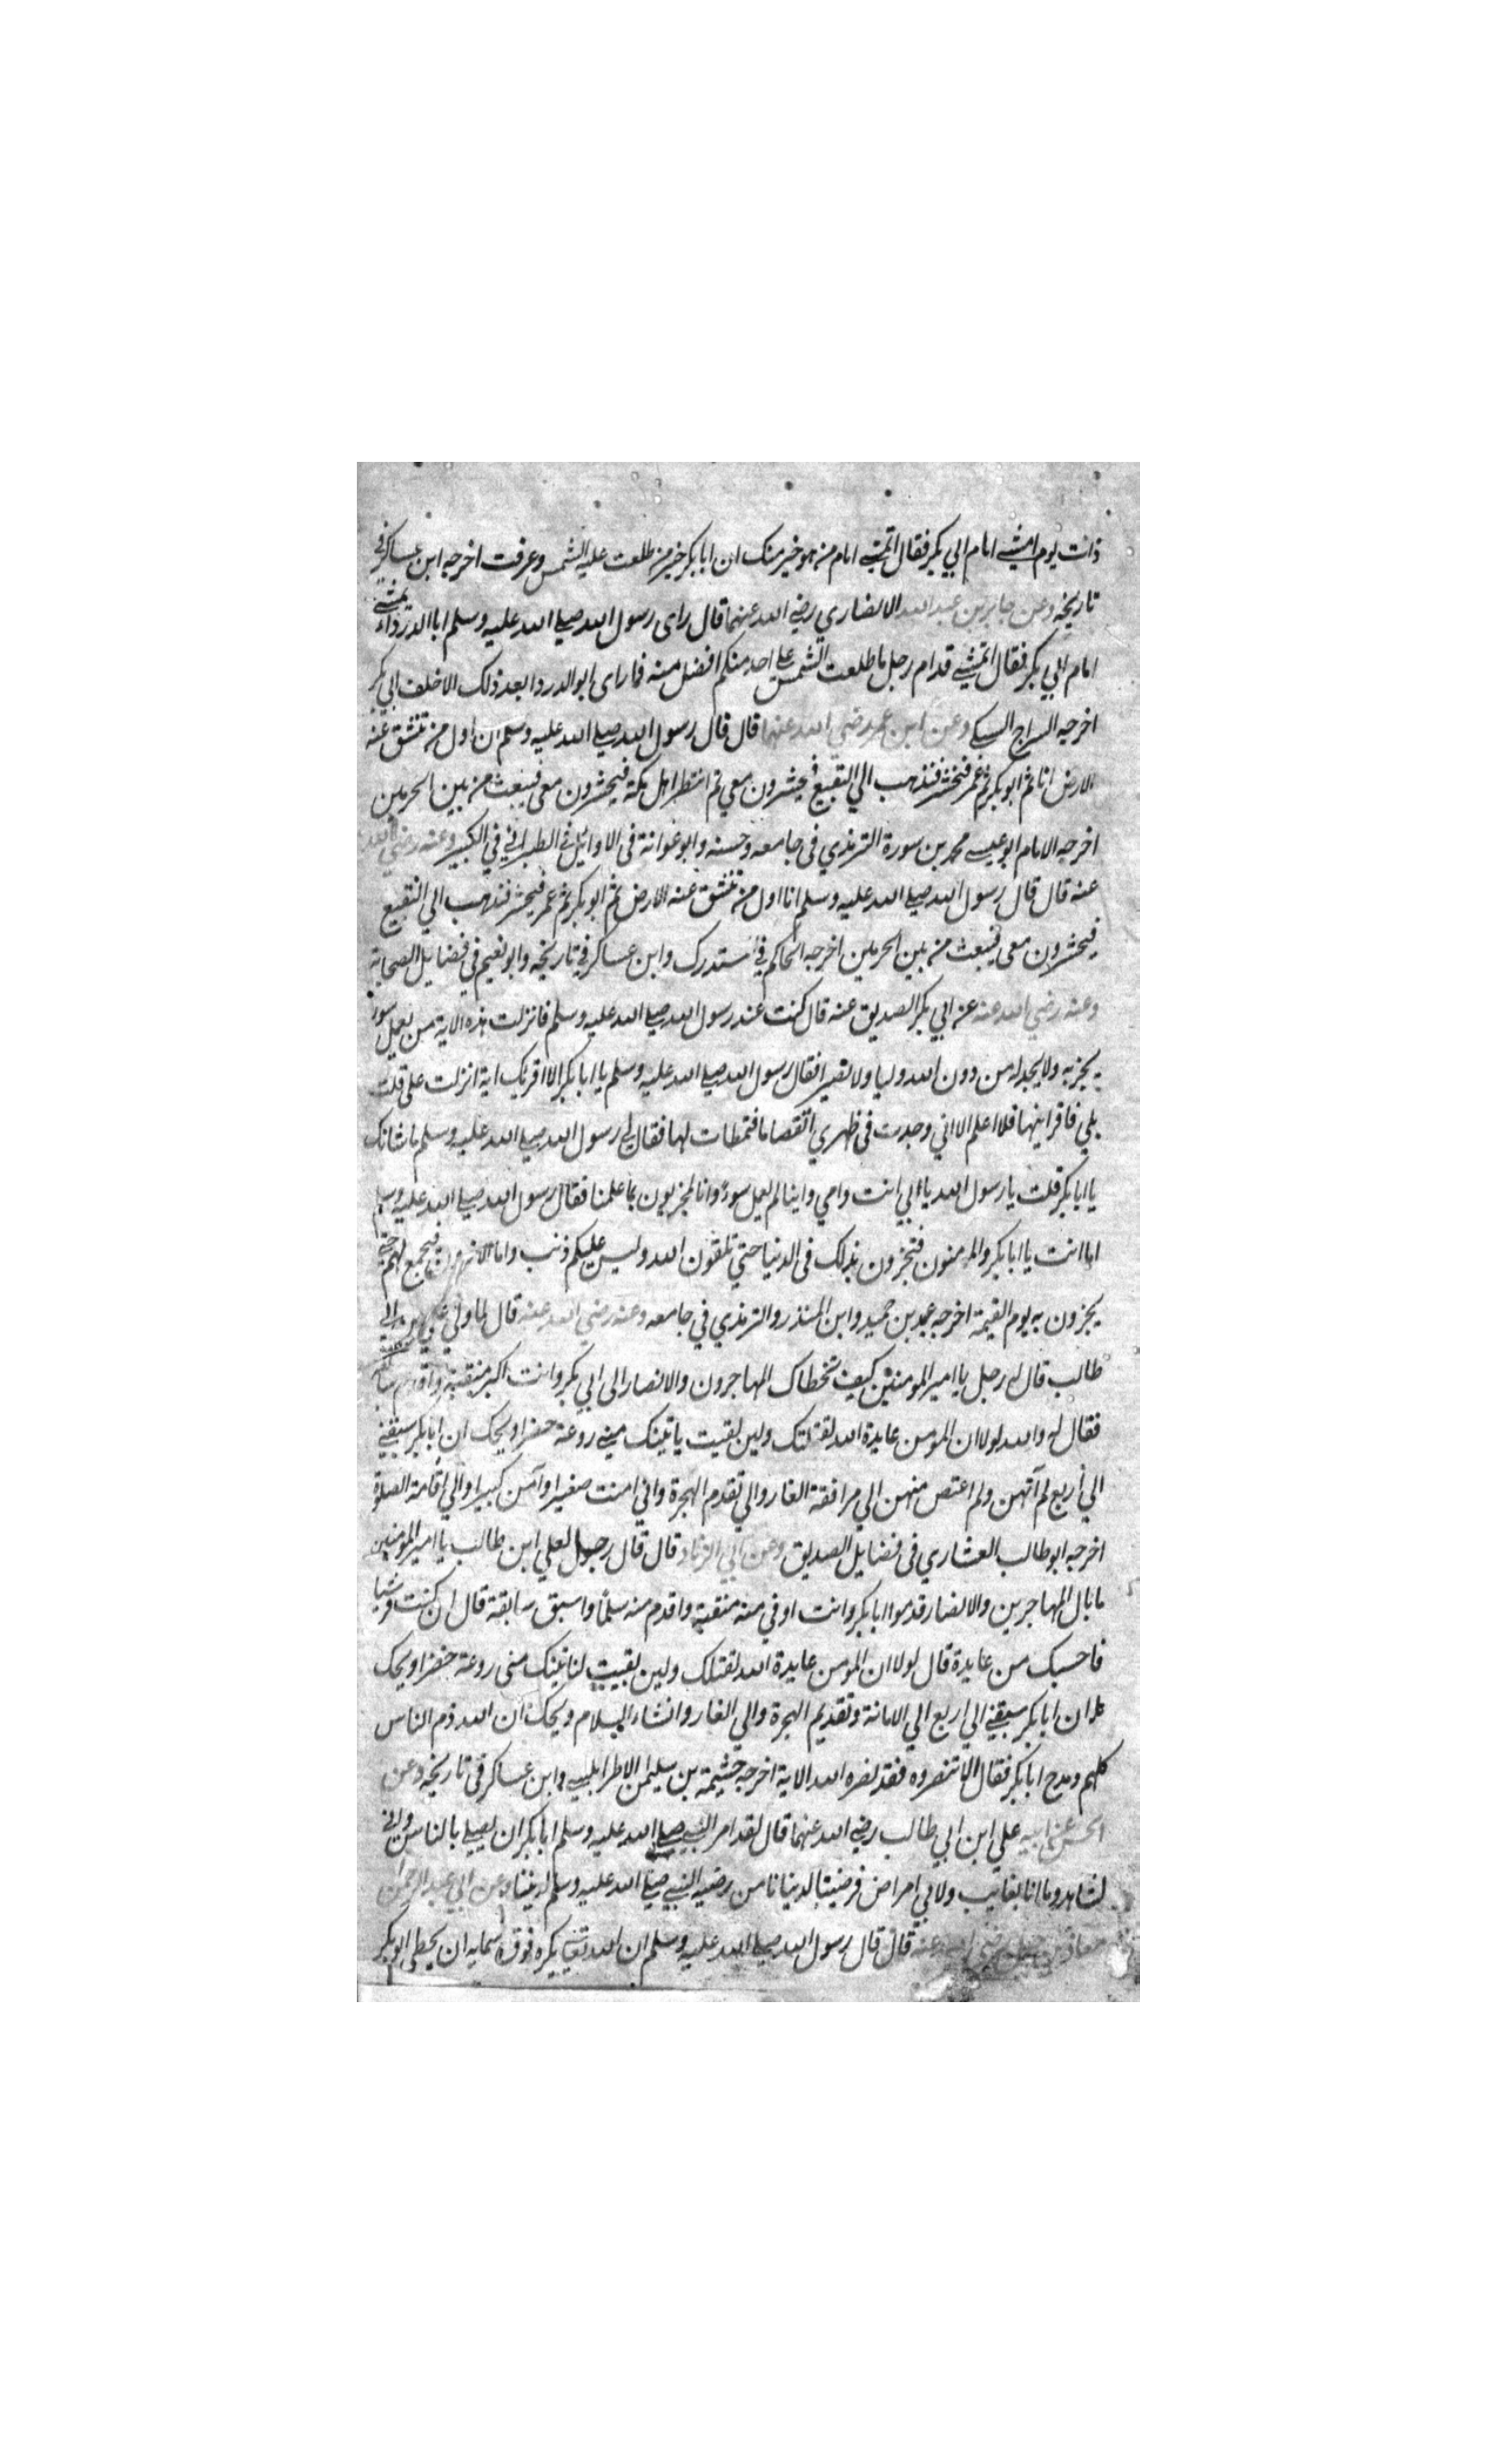 ذات يوم امشي امام ابي بكر فقال اتمشي امام من هو خير منك ان ابا بكر خير من طلعت عليه الشمس وغربت اخرجه ابن عساكر في
تاريخه وعن جابر بن عبد الله الانصاري رضي الله عنهما قال راى رسول الله صلي الله عليه وسلم ابا الدرداء يمشي
امام ابي بكر فقال اتمشي قدام رجل ما طلعت الشمس على احد منكم افضل منه فما راى ابو الدردا بعد ذلك الا خلف ابي بكر
اخرجه السراج السبكي وعن ابن عمر رضي الله عنهما قال قال رسول الله صلي الله عليه وسلم ان اول من تنشق عنه
الارض انا ثم ابو بكر ثم عمر فنحشر فنذهب الي البقيع فيحشرون معي ثم انتظر اهل مكة فيحشرون معي فنبعث من بين الحرمين
اخرجه الامام ابو عيسي محمد بن سورة الترمذي في جامعه وحسنه وابو عوانة في الاوائل في الطبراني في الكبير وعنه رضي الله
عنه قال قال رسول الله صلي الله عليه وسلم انا اول من تنشق عنه الارض ثم ابو بكر ثم عمر فيحشر فنذهب الي البقيع
فيحشرون معي فنبعث من بين الحرمين اخرجه الحاكم في المستدرك وابن عساكر في تاريخه وابو نعيم في فضايل الصحابة
وعنه رضي الله عنه عن ابي بكر الصديق عنه قال كنت عند رسول الله صلي الله عليه وسلم فانزلت هذه الاية من يعمل سوء
يجز به ولا يجد له من دون الله وليا ولا نصيرا فقال رسول الله صلي الله عليه وسلم يا ابا بكر الا اقريك اية انزلت علي قلت
بلي فاقرانيها فلا اعلم الا اني وجدت في ظهري انقصاما فتمطات لها فقال لي رسول الله صلي الله عليه وسلم ما شانك
يا ابا بكر قلت يا رسول الله يا ابي انت وامي واينا لم يعمل سوءً وانا لمجزيون بما علمنا فقال رسول الله صلي الله عليه وسلم
اما انت يا ابا بكر والمومنون فتجزون بذلك في الدنيا حتي تلقون الله وليس عليكم ذنب واما الاخرون فيجمع لهم حتي
يجزون به يوم القيمة اخرجه عبد بن حميد وابن المنذر والترمذي في جامعه وعنه رضي الله عنه قال لما ولي علي بن ابي
طالب قال له رجل يا امير المومنين كيف تخطاك المهاجرون والانصار الى ابي بكر وانت اكبر منقبة واقدم
فقال له والله لولا ان المومن عايدة الله لقتلتك ولين بقيت ياتينك مني روعة حضرا ويحك ان ابا بكر سبقني
الي اربع لم آتهن ولم اعتص منهن الي مرافقة الغار والي تقدم الهجرة واني امنت صغيرا وآمن كبيرا والي اقامة الصلوة
اخرجه ابو طالب العشاري في فضايل الصديق وعن ابي الزناد قال قال رجل لعلي ابن طالب يا امير المومنين
ما بال المهاجرين والانصار قدموا ابا بكر وانت اوفي منه منقبة واقدم منه سلماً واسبق سابقة قال ان كنت قرشيا
فاحسبك من عايدة قال لولا ان المومن عايدة الله لقتلتك ولين بقيت لتاتينك مني روعة حضرا ويحك
ان ابا بكر سبقني الي اربع الي الامانة وتقديم الهجرة والي الغار وانشاء السلام ويحك ان الله ذم الناس
كلهم ومدح ابا بكر فقال الا تنصروه فقد نصره الله الاية اخرجه خثيمة بن سليمن الاطرابلسي وابن عساكر في تاريخه وعن
الحسن عن ابيه علي ابن ابي طالب رضي الله عنهما قال لقد امر النبي صلي الله عليه وسلم ابا بكر ان يصلي بالناس واني
لشاهد وما انا بغايب ولا بي امراض فرضينا لدنيانا من رضيه النبي صلي الله عليه وسلم لديننا وعن ابي عبد الرحمن
معاذ بن جبل رضي الله عنه قال قال رسول الله صلي الله عليه وسلم ان الله تعالي يكره فوق سمايه ان يخطى ابو بكر